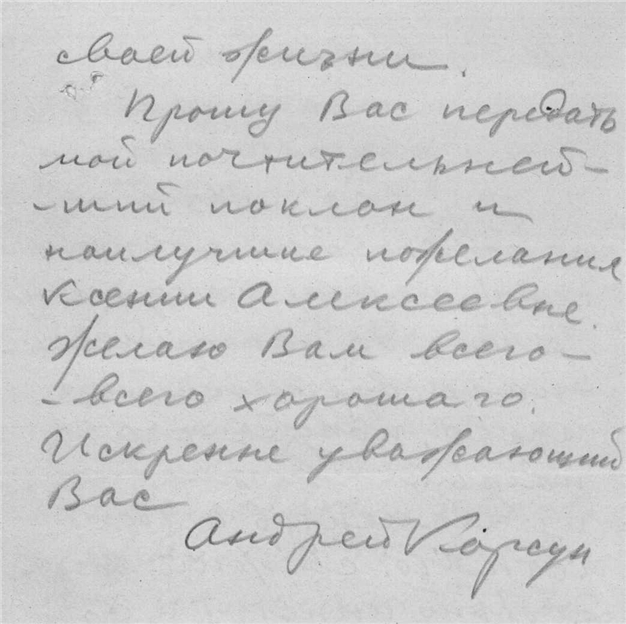 своей жизни.
Прошу Вас передать
мой почтительней-
-ший поклон и
наилучшие пожелания
Ксении Алексеевне.
Желаю Вам всего-
-всего хорошаго.
Искренне уважающий
Вас
Андрей Корсун